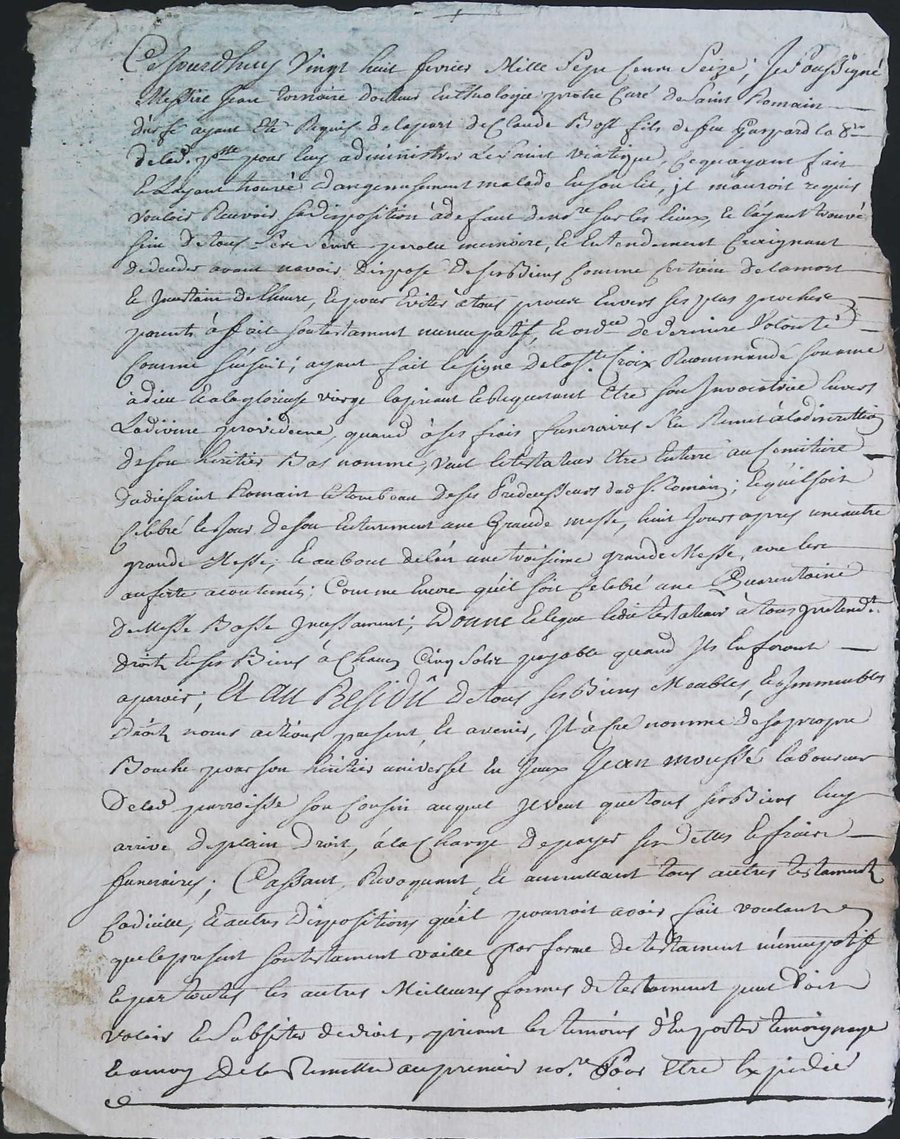 Ce Jourdhuy Vingt huit fevrier Mille Sept Cents Seize, Je Soussigné
Messire Jean tornaire docteur En theologie pretre Curé de Saint Romain
ayant Eté Requis de la part de Claude Bost fils de feu Gaspard
de lad. pour luy administrer Le Saint Viatique, Ce quayant fait
Et Layant trouvé dangereusement malade En son lit, Jl mauroit requis
vouloir Recevoir sa disposition à defaut de no.re sur les lieux, Et layant trouvé
sein de tous Ses Sens parole memoire, Et Entendement Craignant
de deceder avant navoir Disposé De ses Biens Comme Certain de la mort
Et Jncertain de lheure, Et pour Eviter à tous proces Envers ses plus proches
parents à fait son testament nuncupatif, Et ord.ce De derniere Volonté
Comme sensuit; ayant fait le signe de la S.te Croix Recommandé son ame
à dieu Et a la glorieuse vierge la priant Et Requerant Etre son Jnvocatrice Envers
La divine providence, quand à ses frais funeraires S'En Remet à la discretion
de son heritier Bas nommé, veut Le testateur Etre Enterré au Cemitiere
dudit Saint Romain Et tombeau de ses Predecesseurs dud S.t Romain; Et quil soit
Celebré le Jour de son Enterrement une Grande messe, huit Jours apres une autre
grande Messe, Et au bout de lan une troisieme grande Messe, avec les
aoferte acoutumés; Comme Encore qu'il soit Celebré une Quarentaine
de Messe Basse Jncessament; Donne Et legue ledit testateur à tous pretend.t
droit En ses Biens à Chacun Cinq Sols payable quand Jls En feront
aparoir; Et Au Residû De tous ses Biens Meubles, Et Jmmeubles
Droits noms actions present, Et avenir, Jl à Cree nommé De sa propre
Bouche pour son heritier universel En Jceux Jean moussé laboureur
De lad parroisse son Cousin auquel Jl veut que tous ses Biens luy
arrive De plein Droit, à la Charge De payer ses Dettes Et fraix
funeraires; Cassant, Revoquant, Et annullant tous autres testament
Codicille, Et autres Dispositions qu'il pourroit avoir fait voulant
que le present son testament vaille par forme De testament nuncupatif
Et par toutes les autres Meilleures formes de testament peut Doit
valoir Et Subsiter de droit, priant les temoins d'En porter temoignage
Et a moy De le Remettre au premier no.re Pour Etre Expedié